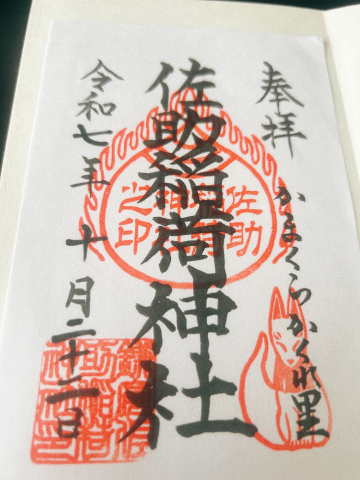 奉拝
かまくらかくれ里
佐助稲荷神社
令和七年十月二十二日
佐助
之印